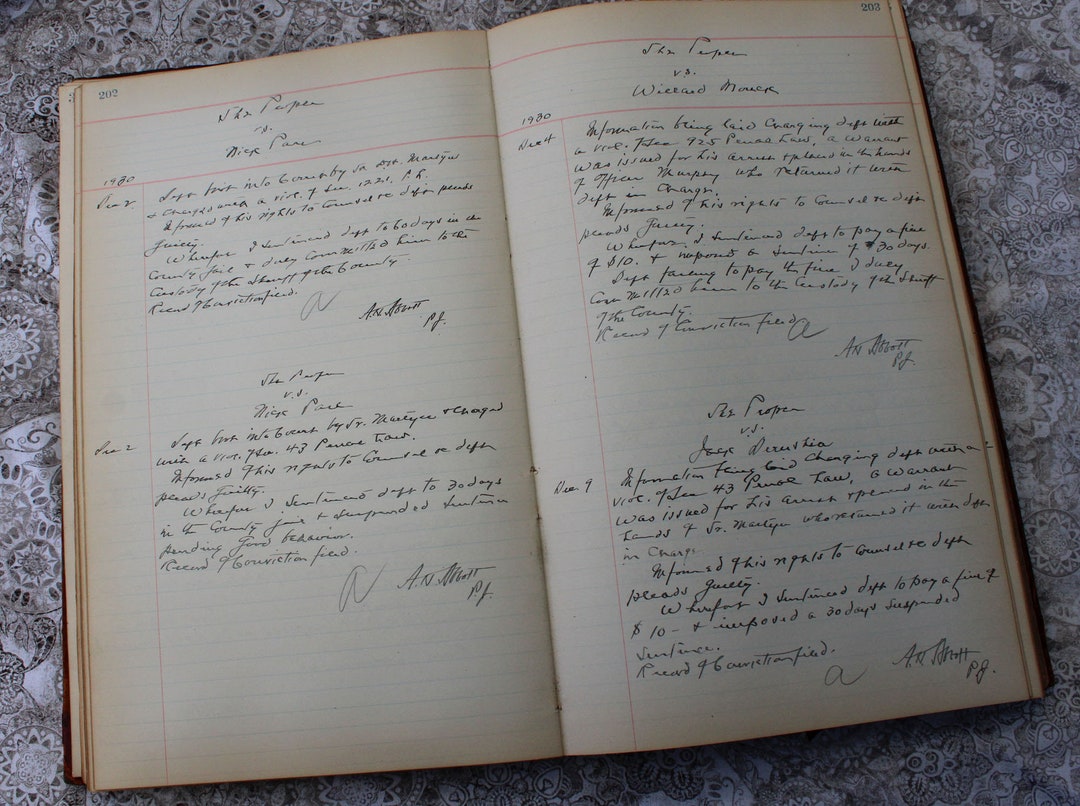 202
The People
vs.
Nick Pare
1930
Dec 2.
Deft brot into Court by Sr. Martyn
& charged with a vio. of Sec. 1221, P.L.
Informed of his rights to Counsel etc deft pleads
guilty.
Wherefor I sentenced deft to 60 days in the
County Jail & duly committed him to the
Custody of the Sheriff of the County.
Record of Conviction filed.
A.N. Abbott
P.J.
The People
v.s.
Nick Pare
Dec 2
Deft brot into Court by Sr. Martyn & charged
with a vio. of Sec. 43 Penal Law.
Informed of his rights to Counsel etc deft
pleads guilty.
Wherefor I sentenced deft to 30 days
in the County Jail & suspended sentence
pending good behavior.
Record of Conviction filed.
A.N. Abbott
P.J.
203
The People
v.s.
Willard
1930
Dec 4
Information being laid charging deft with
a vio. of Sec 925 Penal Law, a warrant
was issued for his arrest & placed in the hands
of Officer Murphy who returned it with
deft in charge.
Informed of his rights to Counsel etc deft
pleads guilty.
Wherefor, I sentenced deft to pay a fine
of $10. & imposed a sentence of 30 days.
Deft failing to pay the fine I duly
committed him to the Custody of the Sheriff
of the County.
Record of Conviction filed
A.N. Abbott
P.J.
The People
v.s.
Jack Derushia
Dec. 9
Information being laid charging deft with a
vio. of Sec 43 Penal Law, a warrant
was issued for his arrest & placed in the
hands of Sr. Martyn who returned it with deft
in charge.
Informed of his rights to Counsel etc deft
pleads guilty.
Wherefor I sentenced deft to pay a fine of
$10 - & imposed a 30 days suspended
sentence.
Record of Conviction filed.
A.N. Abbott
P.J.